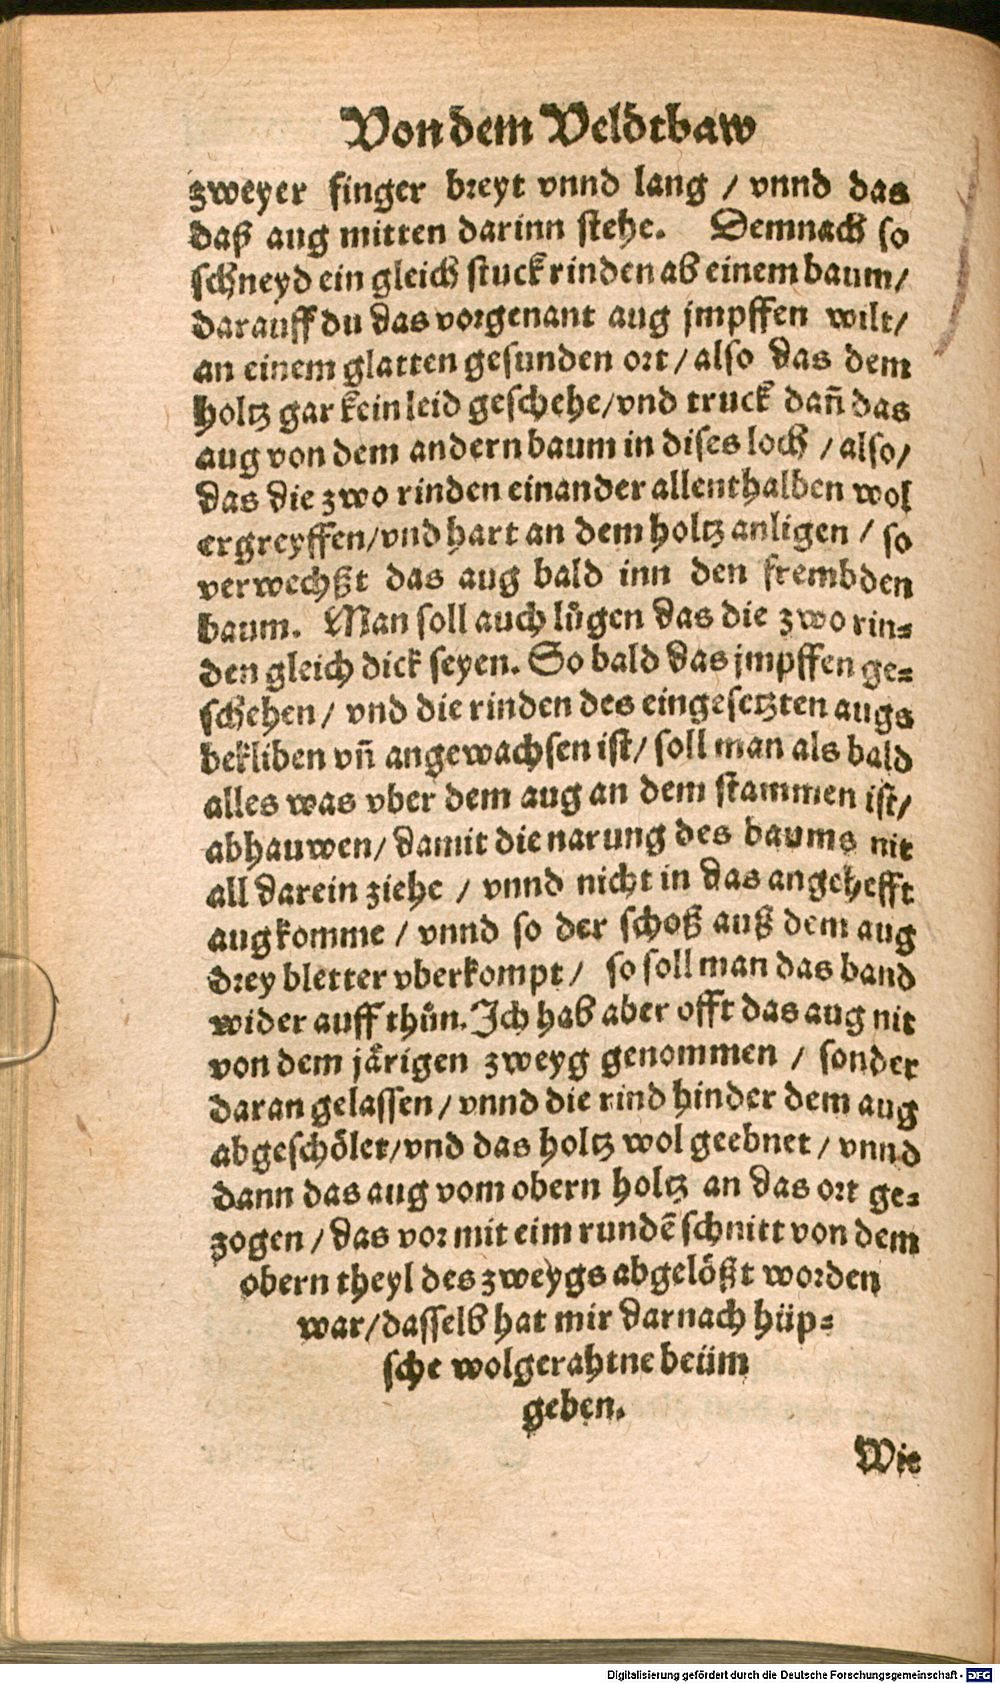 Von dem Veldtbaw
zweyer finger breyt vnnd lang / vnnd das
daß aug mitten darinn stehe. Demnach so
schneyd ein gleich stuck rinden ab einem baum/
darauff du das vorgenant aug jmpffen wilt/
an einem glatten gesunden ort / also das dem
holtz gar kein leid geschehe/vnd truck dañ das
aug von dem andern baum in dises loch / also/
das die zwo rinden einander allenthalben wol
ergreyffen/vnd hart an dem holtz anligen / so
verwechßt das aug bald inn den frembden
baum. Man soll auch lůgen das die zwo rin⸗
den gleich dick seyen. So bald das jmpffen ge⸗
schehen/ vnd die rinden des eingesetzten augs
bekliben vñ angewachsen ist/ soll man als bald
alles was vber dem aug an dem stammen ist/
abhauwen/ damit die narung des baums nit
all darein ziehe / vnnd nicht in das angehefft
aug komme / vnnd so der schoß auß dem aug
drey bletter vberkompt/ so soll man das band
wider auff thůn. Ich hab aber offt das aug nit
von dem järigen zweyg genommen / sonder
daran gelassen / vnnd die rind hinder dem aug
abgeschölet/vnd das holtz wol geebnet / vnnd
dann das aug vom obern holtz an das ort ge⸗
zogen / das vor mit eim rundẽ schnitt von dem
obern theyl des zweygs abgelößt worden
war/dasselb hat mir darnach hüp⸗
sche wolgerahtne beüm
geben.
Wie
Digitalisierung gefördert durch die Deutsche Forschungsgemeinschaft - DFG